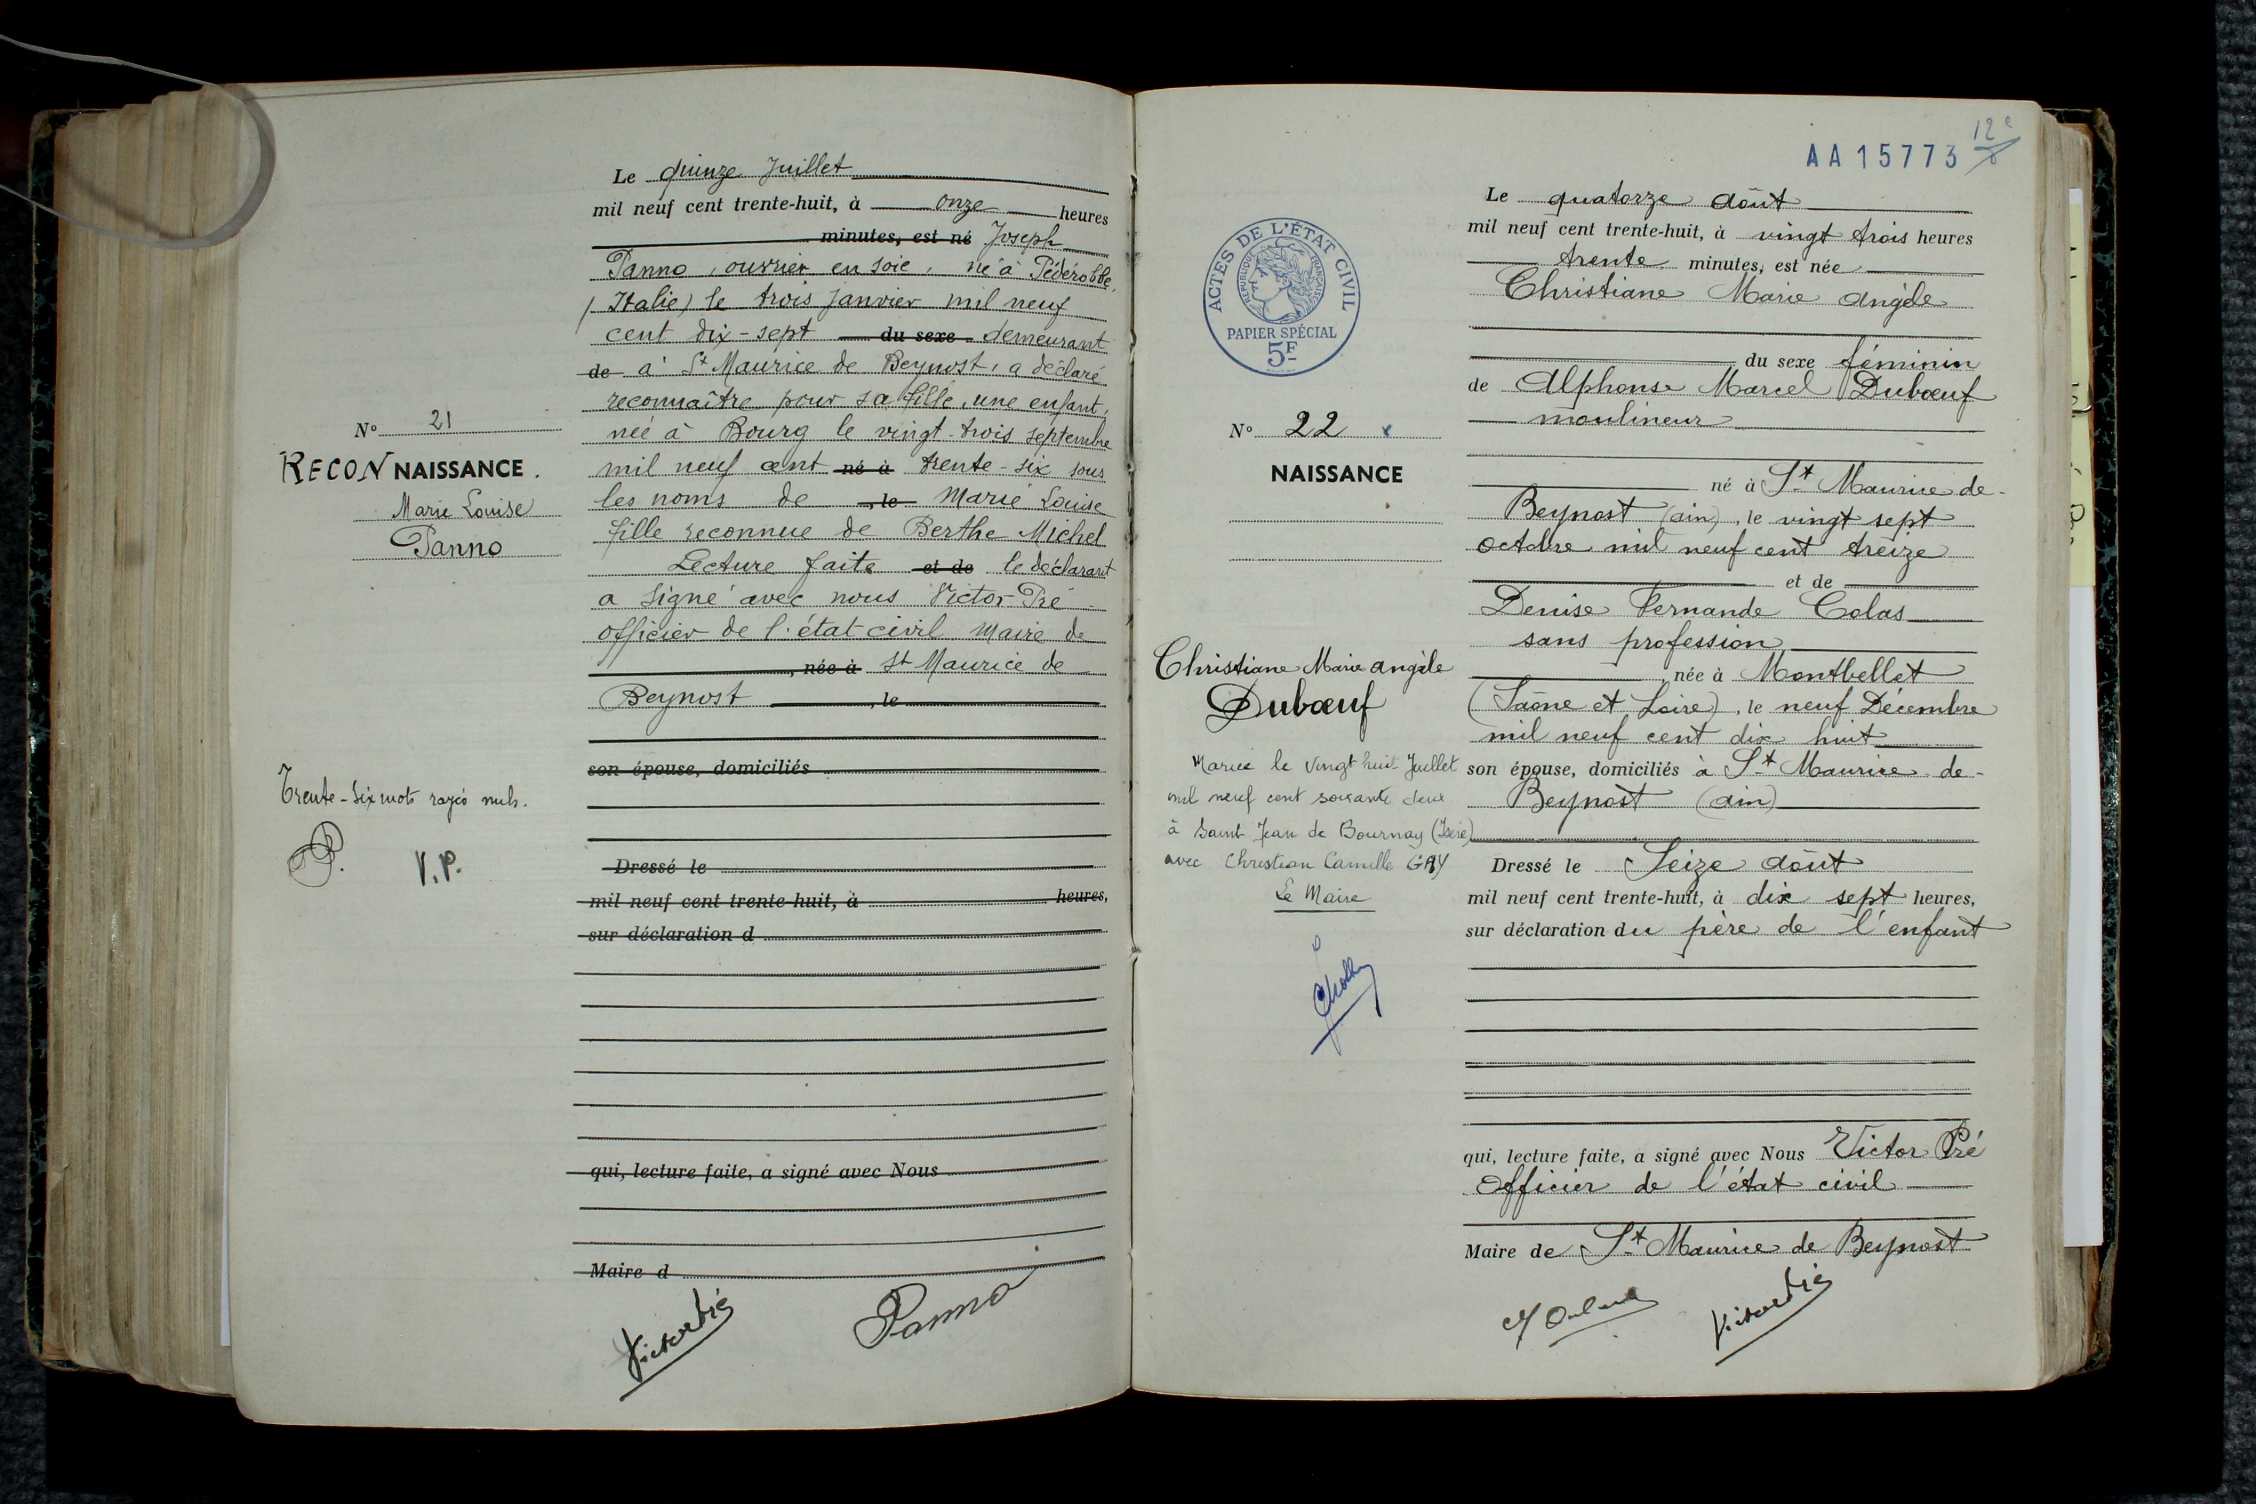 Le quinze Juillet
mil neuf cent trente-huit, à onze heures
minutes, est né Joseph
Panno, ouvrier en soie, né à Pédérobbe,
(Italie) le trois Janvier mil neuf
cent dix-sept du sexe demeurant
de à St Maurice de Beynost, a déclaré
reconnaître pour sa fille, une enfant,
née à Bourg le vingt-trois septembre
mil neuf cent né à trente-six sous
les noms de , le Marie Louise
fille reconnue de Berthe Michel
Lecture faite et de le déclarant
a signé avec nous Victor Pré
officier de l'état civil Maire de
, née à St Maurice de
Beynost , le
son épouse, domiciliés
Dressé le
mil neuf cent trente-huit, à heures,
sur déclaration d
qui, lecture faite, a signé avec Nous
Maire d
Panno
N° 21
RECONNAISSANCE.
Marie Louise
Panno
Trente-six mots rayés nuls.
P. V.P.
AA15773
12e
ACTES DE L'ÉTAT CIVIL
RÉPUBLIQUE FRANÇAISE
PAPIER SPÉCIAL
5F
N° 22 x
NAISSANCE
Christiane Marie Angèle
Dubœuf
Mariée le vingt huit Juillet
mil neuf cent soixante deux
à Saint Jean de Bournay (Isère)
avec Christian Camille GAY
Le Maire
Le quatorze août
mil neuf cent trente-huit, à vingt trois heures
trente minutes, est née
Christiane Marie Angèle
du sexe féminin
de Alphonse Marcel Dubœuf
moulineur
né à St Maurice de-
Beynost (Ain), le vingt sept
octobre mil neuf cent treize
et de
Denise Fernande Colas
sans profession
, née à Montbellet
(Saône et Loire), le neuf Décembre
mil neuf cent dix huit
son épouse, domiciliés à St Maurice de-
Beynost (Ain)
Dressé le Seize août
mil neuf cent trente-huit, à dix sept heures,
sur déclaration du père de l'enfant
qui, lecture faite, a signé avec Nous Victor Pré
Officier de l'état civil
Maire de St Maurice de Beynost